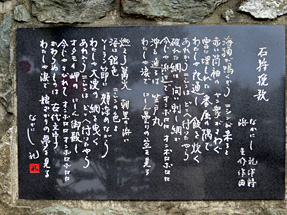 石狩挽歌
なかにし礼 作詩
浜 圭介 作曲
海猫が鳴くから ニシンが来ると
赤い筒袖の やん衆がさわぐ
雪に埋もれた 番屋の隅で
わたしゃ夜通し 飯を炊く
あれからニシンは どこへ行ったやら
破れた網は 問い刺し網か
今じゃ浜辺で オンボロロ オンボロボロロ
沖を通るは 笠戸丸
わたしゃ涙で ニシン曇りの 空を見る
燃えろ篝火 朝里の浜に
海は銀色 ニシンの色よ
ソーラン節に 頬そめながら
わたしゃ大漁の 網を曳く
あれからニシンは どこへ行ったやら
オタモイ岬の ニシン御殿も
今じゃさびれて オンボロロ オンボロボロロ
かわらぬものは 古代文字
わたしゃ涙で 娘ざかりの 夢を見る
なかにし 礼